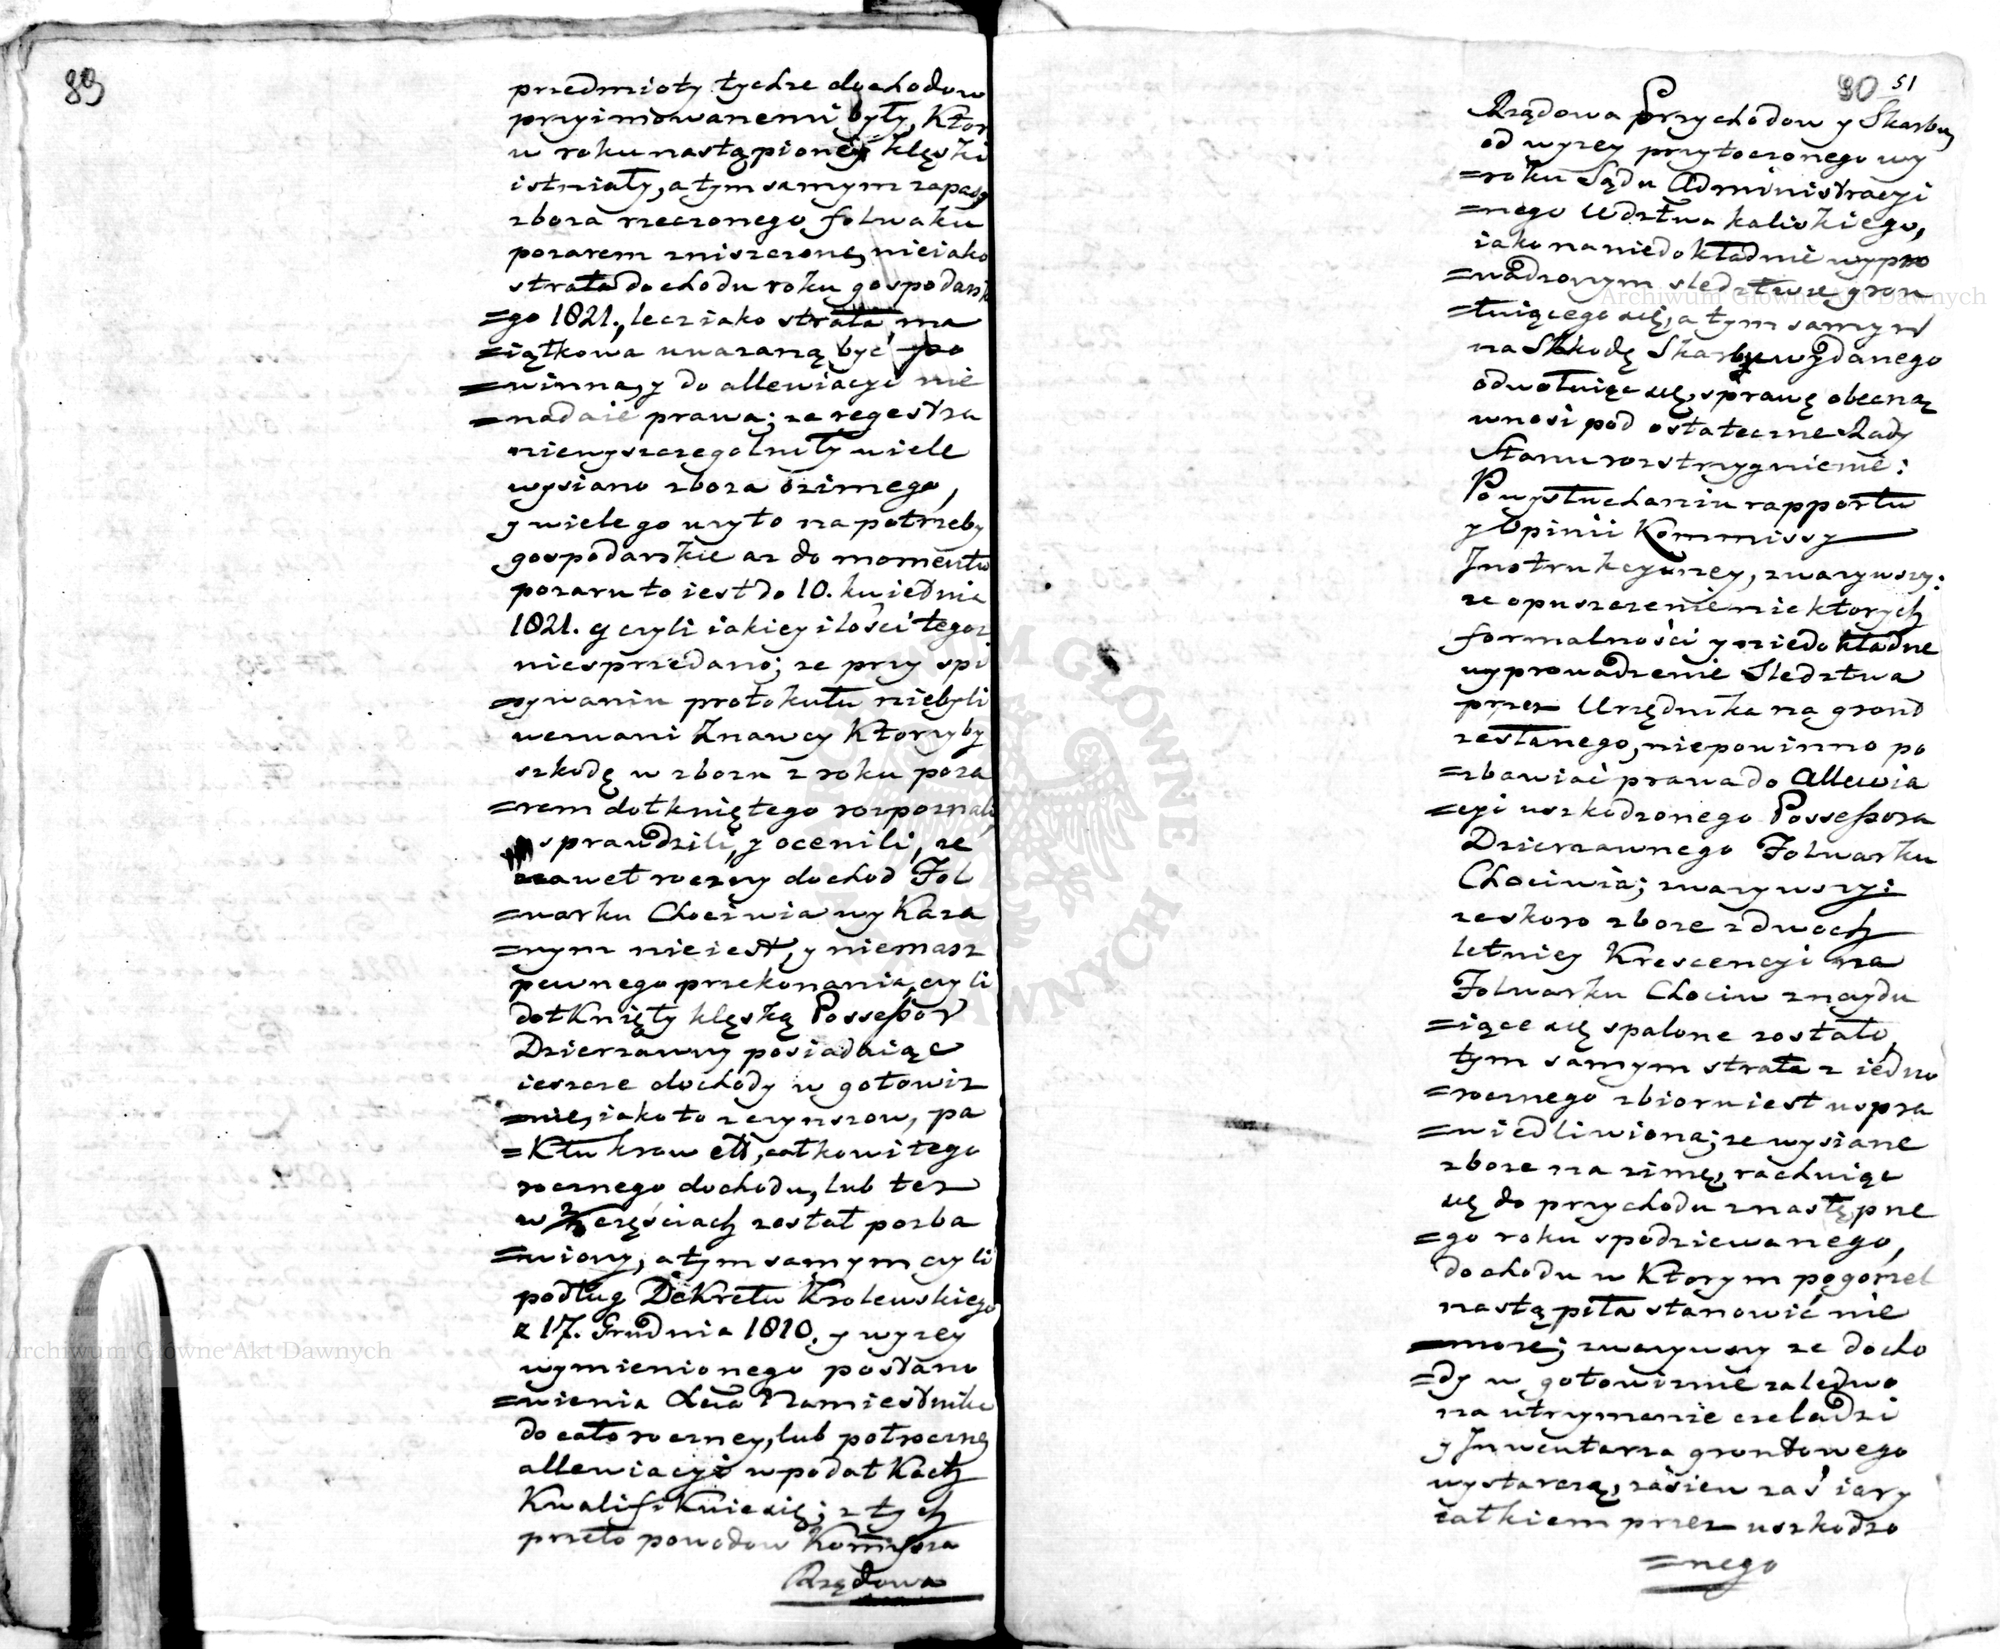 89
przedmioty tychże dochodow
przyimowanemi były, Ktor
w roku nastąpioney klęski
istniały, a tym samym zapasy
zboża rzeczonego folwaku
pożarem zniszczone, nieiako
strata dochodu roku gospodarsk
=go 1821., lecz iako strata ma
=iątkowa uważaną być po
=winna, y do allewiacyi nie
=nadaie prawa; że regestra
niewyszczegolniły wiele
wysiano zboża ozimego,
y wiele go użyto na potrzeby
gospodarskie aż do momentu
pożaru to iest do 10. kwietnia
1821. y czyli iakiey ilości tegoż
niesprzedano; że przy spi
=sywaniu protokułu niebyli
wezwani Znawcy Ktorzyby
szkodę w zbożu z roku poża
=rem dotkniętego rozpoznali,
sprawdzili, y ocenili, że
nawet roczny dochod Fol
=warku Chociwia wykaza
=nym nie iest, y niemasz
pewnego przekonania, czyli
dotknięty klęską Possessor
Dzierżawny posiadaiąc
ieszcze dochody w gotowiz
=nie, iako to z czynszow, pa
=Ktu krow ett, całkowitego
rocznego dochodu, lub też
w 2/3 częściach został pozba
=wiony, a tym samym czyli
podług DeKretu Krolewskiego
z 17. Grudnia 1810. y wyżey
wymienionego postano
=wienia Namiestnika
do całoroczney, lub połroczney
allewiacyi w podatKach
KwalifiKuie się; z tych
przeto powodow Kommissya
Rządowa
90 51
Rządowa Przychodow y Skarbu,
od wyżey przytoczonego wy
=roku Sądu Administracyi
=nego Wdztwa kaliskiego,
iako na niedokładnie wypro
=wadzonym sledztwie grun
=tuiącego się, a tym samym
na Szkodę Skarbu wydanego
odwołuiąc się, sprawę obecną
wnosi pod ostateczne Rady
Stanu rozstrzygnienie:
Po wysłuchaniu rapportu
y Opinii Kommissy
Instrukcyiney, zważywszy:
że opuszczenie nieKtorych
formalności y niedokładne
wyprowadzenie Sledztwa
przez Urzędnika na grunt
zesłanego, niepowinno po
=zbawiać prawa do Allewia
=cyi uszkodzonego Possessora
Dzierżawnego Folwarku
Chociwia; zważywszy:
że skoro zboże z dwoch
letniey Krescencyi na
Folwarku Chociw znaydu
=iące się spalone zostało,
tym samym strata z iedno
=rocznego zbioru iest uspra
=wiedliwiona; że wysiane
zboże na zimę, rachuiąc
się do przychodu z następne
=go roku spodziewanego,
dochodu w Ktorym pogorzel
nastąpiła stanowić nie
=może; zważywszy że docho
=dy w gotowiznie zaledwo
na utrzymanie czeladzi
y Inwentarza gruntowego
wystarczą, zasiew zaś iary
całkiem przez uszkodzo
=nego
Archiwum Główne Akt Dawnych
Archiwum Główne Akt Dawnych
ARCHIWUM GŁÓWNE AKT DAWNYCH